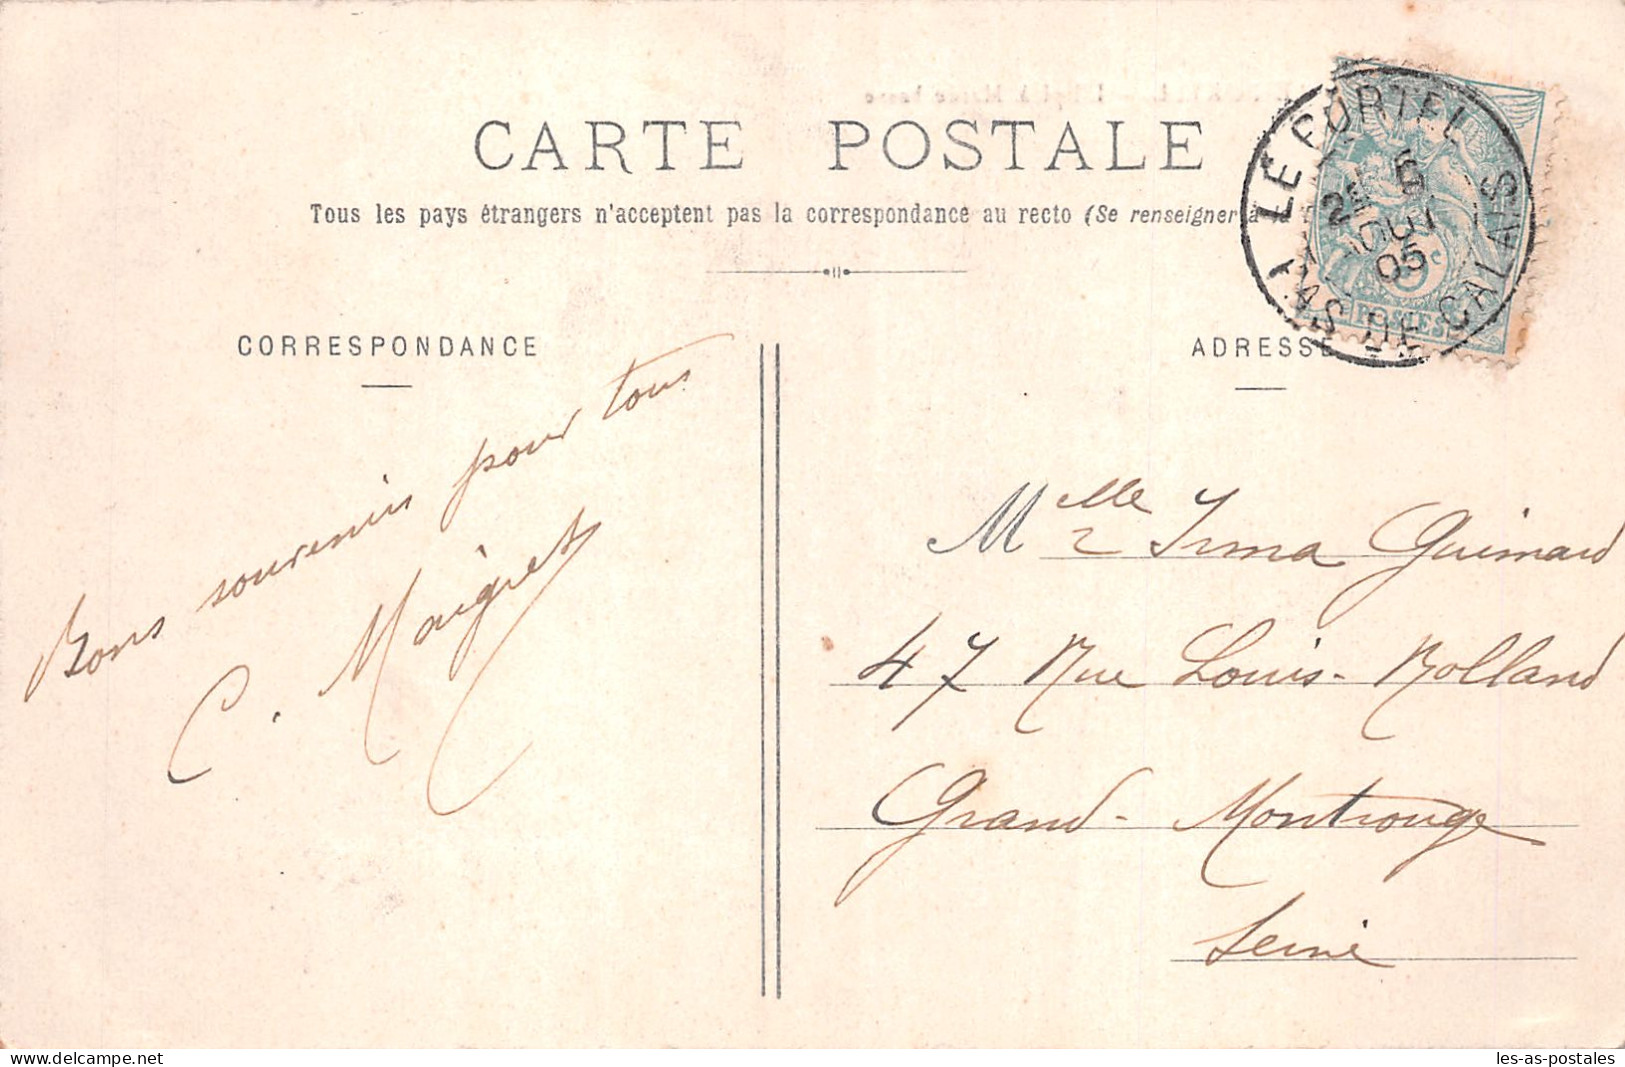 CARTE POSTALE
Tous les pays étrangers n'acceptent pas la correspondance au recto (Se renseigner à la
CORRESPONDANCE
ADRESSE
LE PORTEL
PAS DE CALAIS
05
5c
POSTES
Bons souvenirs pour tous
C. Maigret
Mlle Irma Guimard
47 Rue Louis-Rolland
Grand-Montrouge
Seine
delcampe.net
les-as-postales